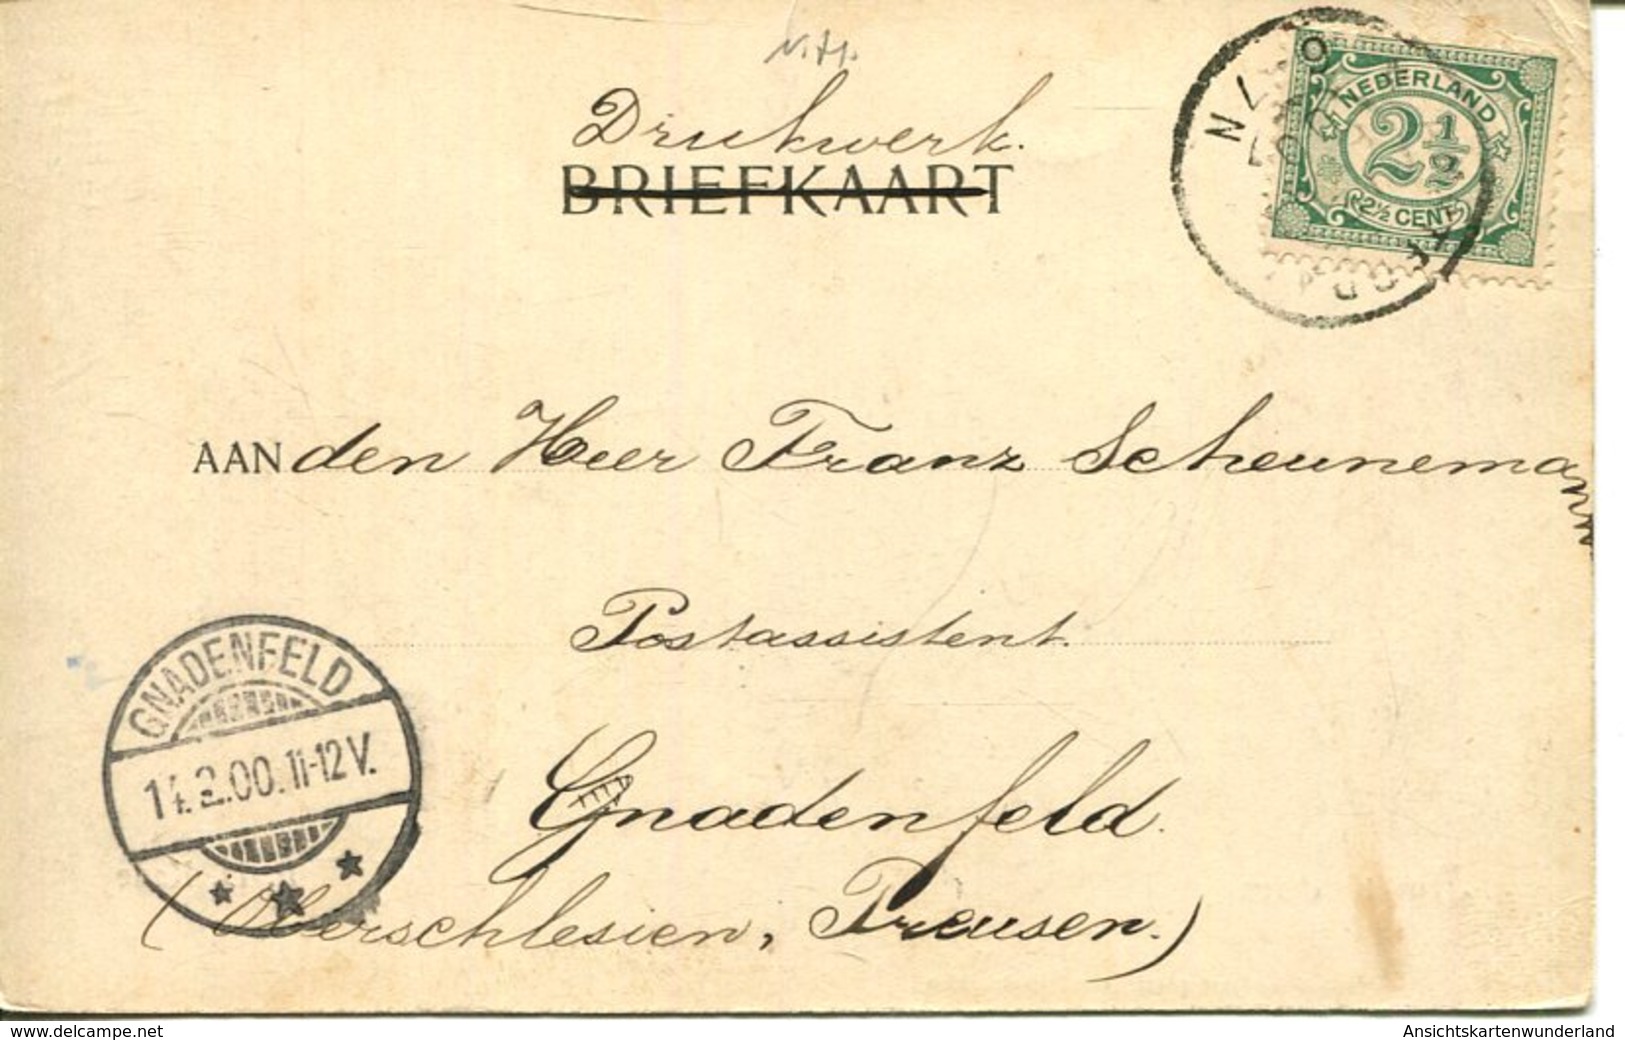 Drukwerk.
BRIEFKAART
NEDERLAND
2 1/2
2 1/2 CENT
AAN den Heer Franz Scheunemann
Postassistent.
GNADENFELD
14.2.00.11-12V.
Gnadenfeld.
(Oberschlesien, Preusen.)
www.delcampe.net
Ansichtskartenwunderland